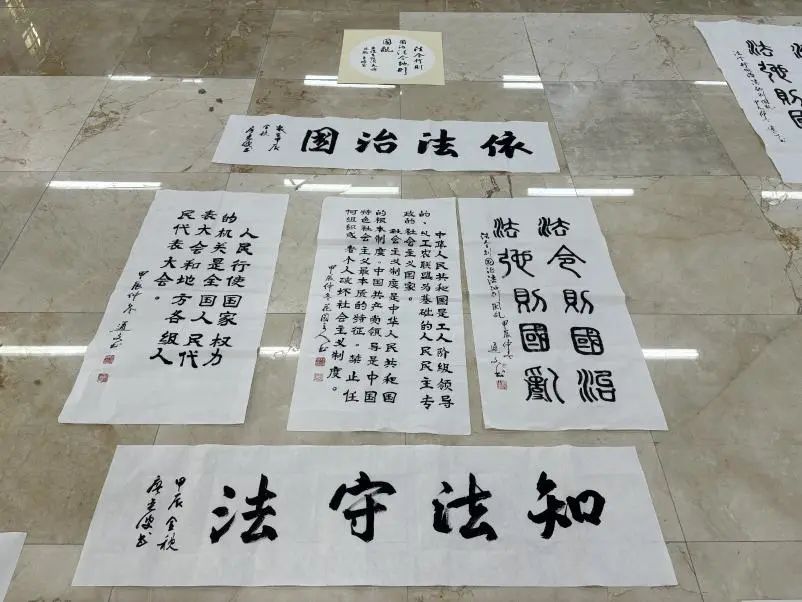 法令行则
国治法令弛则
国乱
依法治国
甲辰
金秋
人民行使国家权力
的机关是全国人民代
表大会和地方各级人
民代表大会。
甲辰仲冬
中华人民共和国是工人阶级领导
的、以工农联盟为基础的人民民主专
政的社会主义国家。
社会主义制度是中华人民共和国
的根本制度。中国共产党领导是中国
特色社会主义最本质的特征。禁止任
何组织或者个人破坏社会主义制度。
甲辰仲冬
法令則國治
法弛則國亂
知法守法
甲辰金秋